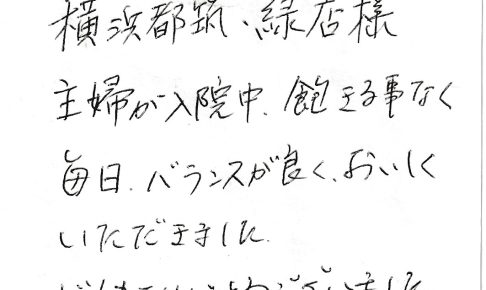 横浜都筑、緑店様
主婦が入院中、飽きる事なく
毎日、バランスが良く、おいしく
いただきました。